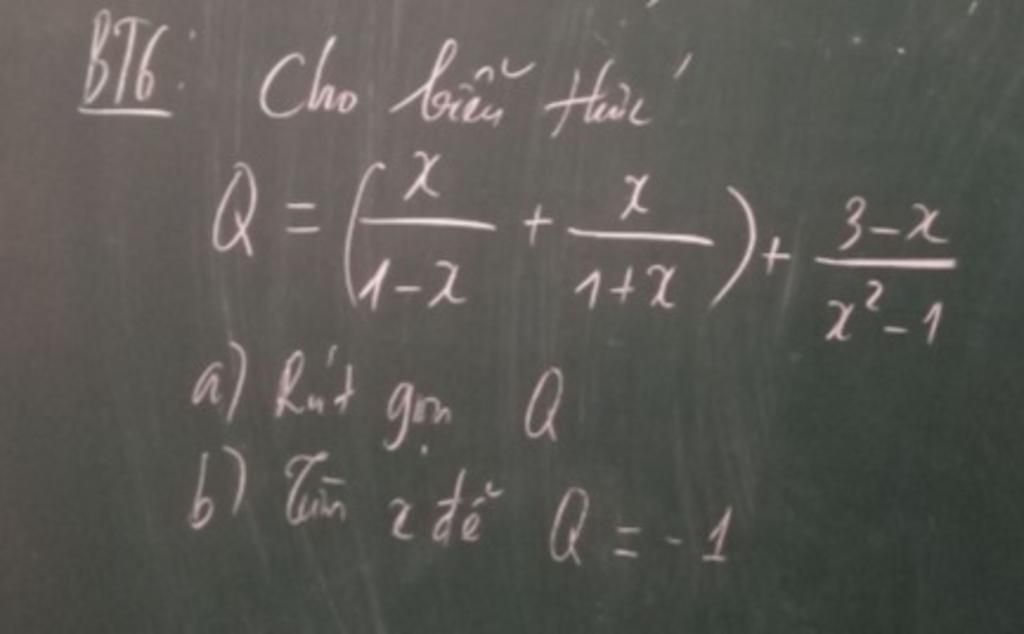 BT6: Cho biểu thức
Q = (x/(1-x) + x/(1+x)) + (3-x)/(x²-1)
a) Rút gọn Q
b) Tìm x để Q = -1